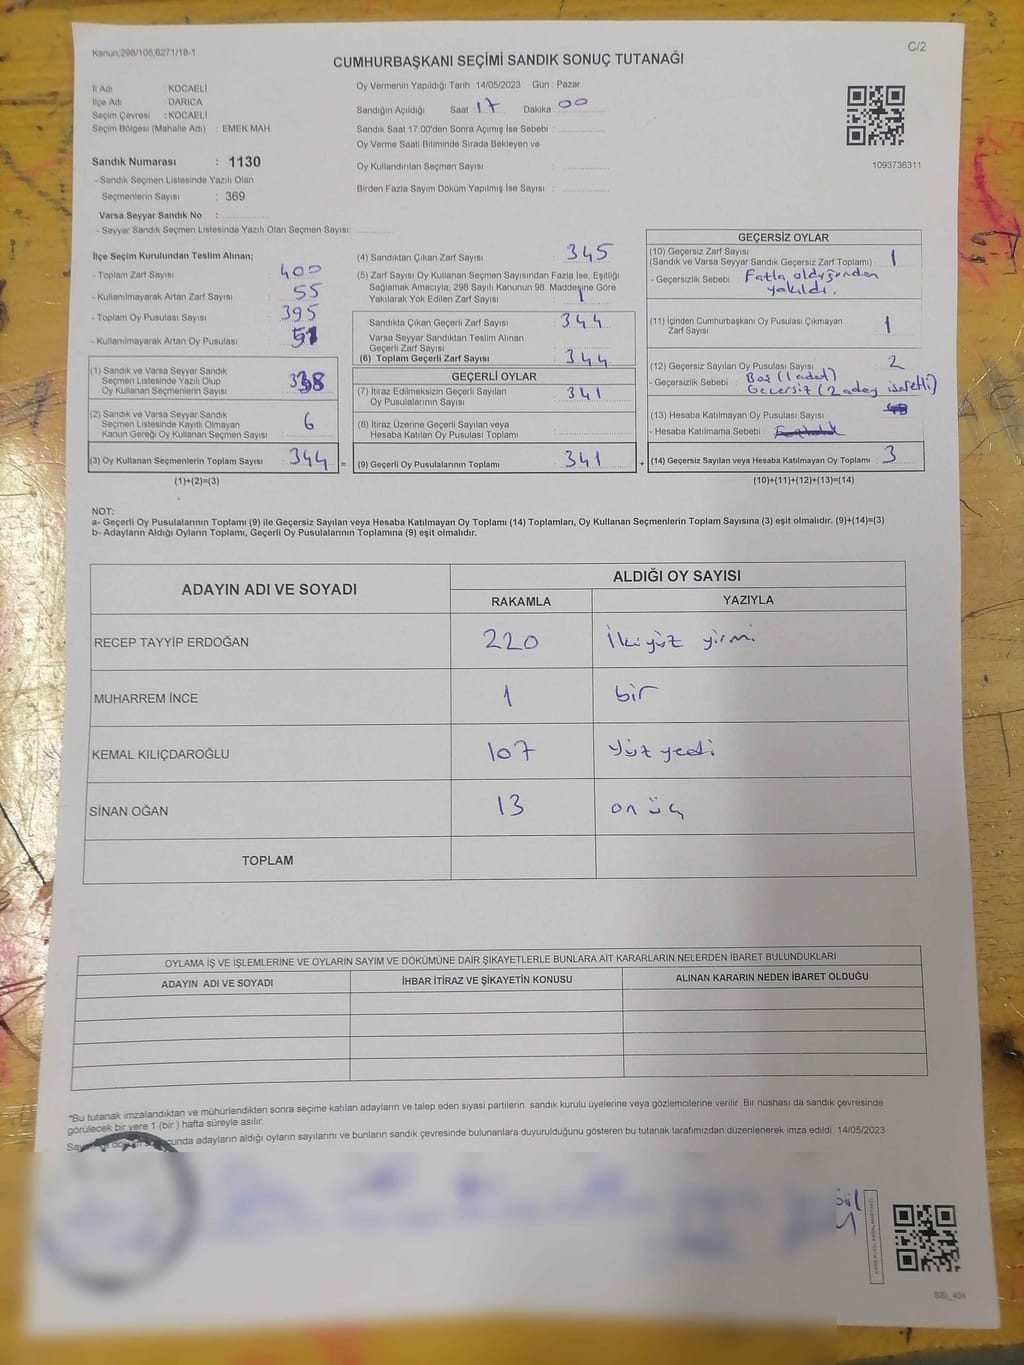 Kanun;298/105;6271/18-1
C/2
CUMHURBAŞKANI SEÇİMİ SANDIK SONUÇ TUTANAĞI
İl Adı : KOCAELİ
İlçe Adı : DARICA
Seçim Çevresi : KOCAELİ
Seçim Bölgesi (Mahalle Adı) : EMEK MAH
Sandık Numarası : 1130
- Sandık Seçmen Listesinde Yazılı Olan
Seçmenlerin Sayısı : 369
Varsa Seyyar Sandık No : ..............
- Seyyar Sandık Seçmen Listesinde Yazılı Olan Seçmen Sayısı: ..............
Oy Vermenin Yapıldığı Tarih : 14/05/2023 Gün : Pazar
Sandığın Açıldığı Saat : 17 Dakika : 00
Sandık Saat 17:00'den Sonra Açımış İse Sebebi : ..............
Oy Verme Saati Bitiminde Sırada Bekleyen ve
Oy Kullandırılan Seçmen Sayısı : ..............
Birden Fazla Sayım Döküm Yapılmış İse Sayısı : ..............
1093736311
İlçe Seçim Kurulundan Teslim Alınan;
- Toplam Zarf Sayısı : 400
- Kullanılmayarak Artan Zarf Sayısı : 55
- Toplam Oy Pusulası Sayısı : 395
- Kullanılmayarak Artan Oy Pusulası : 51
(1) Sandık ve Varsa Seyyar Sandık
Seçmen Listesinde Yazılı Olup
Oy Kullanan Seçmenlerin Sayısı : 338
(2) Sandık ve Varsa Seyyar Sandık
Seçmen Listesinde Kayıtlı Olmayan
Kanun Gereği Oy Kullanan Seçmen Sayısı : 6
(3) Oy Kullanan Seçmenlerin Toplam Sayısı : 344 =
(1)+(2)=(3)
(4) Sandıktan Çıkan Zarf Sayısı : 345
(5) Zarf Sayısı Oy Kullanan Seçmen Sayısından Fazla İse, Eşitliği
Sağlamak Amacıyla; 298 Sayılı Kanunun 98. Maddesine Göre
Yakılarak Yok Edilen Zarf Sayısı : 1
Sandıkta Çıkan Geçerli Zarf Sayısı : 344
Varsa Seyyar Sandıktan Teslim Alınan
Geçerli Zarf Sayısı
(6) Toplam Geçerli Zarf Sayısı : 344
GEÇERLİ OYLAR
(7) İtiraz Edilmeksizin Geçerli Sayılan
Oy Pusulalarının Sayısı : 341
(8) İtiraz Üzerine Geçerli Sayılan veya
Hesaba Katılan Oy Pusulası Toplamı : ..............
(9) Geçerli Oy Pusulalarının Toplamı : 341 +
GEÇERSİZ OYLAR
(10) Geçersiz Zarf Sayısı
(Sandık ve Varsa Seyyar Sandık Geçersiz Zarf Toplamı) : 1
- Geçersizlik Sebebi : Fazla olduğundan
yakıldı.
(11) İçinden Cumhurbaşkanı Oy Pusulası Çıkmayan
Zarf Sayısı : 1
(12) Geçersiz Sayılan Oy Pusulası Sayısı : 2
- Geçersizlik Sebebi : Boş (1 adet)
Geçersiz (2 aday işaretli)
(13) Hesaba Katılmayan Oy Pusulası Sayısı :
- Hesaba Katılmama Sebebi :
(14) Geçersiz Sayılan veya Hesaba Katılmayan Oy Toplamı : 3
(10)+(11)+(12)+(13)=(14)
NOT:
a- Geçerli Oy Pusulalarının Toplamı (9) ile Geçersiz Sayılan veya Hesaba Katılmayan Oy Toplamı (14) Toplamları, Oy Kullanan Seçmenlerin Toplam Sayısına (3) eşit olmalıdır. (9)+(14)=(3)
b- Adayların Aldığı Oyların Toplamı, Geçerli Oy Pusulalarının Toplamına (9) eşit olmalıdır.
ADAYIN ADI VE SOYADI ALDIĞI OY SAYISI
RAKAMLA YAZIYLA
RECEP TAYYİP ERDOĞAN 220 İkiyüz yirmi
MUHARREM İNCE 1 bir
KEMAL KILIÇDAROĞLU 107 yüz yedi
SİNAN OĞAN 13 on üç
TOPLAM
OYLAMA İŞ VE İŞLEMLERİNE VE OYLARIN SAYIM VE DÖKÜMÜNE DAİR ŞİKAYETLERLE BUNLARA AİT KARARLARIN NELERDEN İBARET BULUNDUKLARI
ADAYIN ADI VE SOYADI İHBAR İTİRAZ VE ŞİKAYETİN KONUSU ALINAN KARARIN NEDEN İBARET OLDUĞU
*Bu tutanak imzalandıktan ve mühürlendikten sonra seçime katılan adayların ve talep eden siyasi partilerin sandık kurulu üyelerine veya gözlemcilerine verilir. Bir nüshası da sandık çevresinde
görülecek bir yere 1 (bir) hafta süreyle asılır.
adayların aldığı oyların sayılarını ve bunların sandık çevresinde bulunanlara duyurulduğunu gösteren bu tutanak tarafımızdan düzenlenerek imza edildi. 14/05/2023
SSI_404